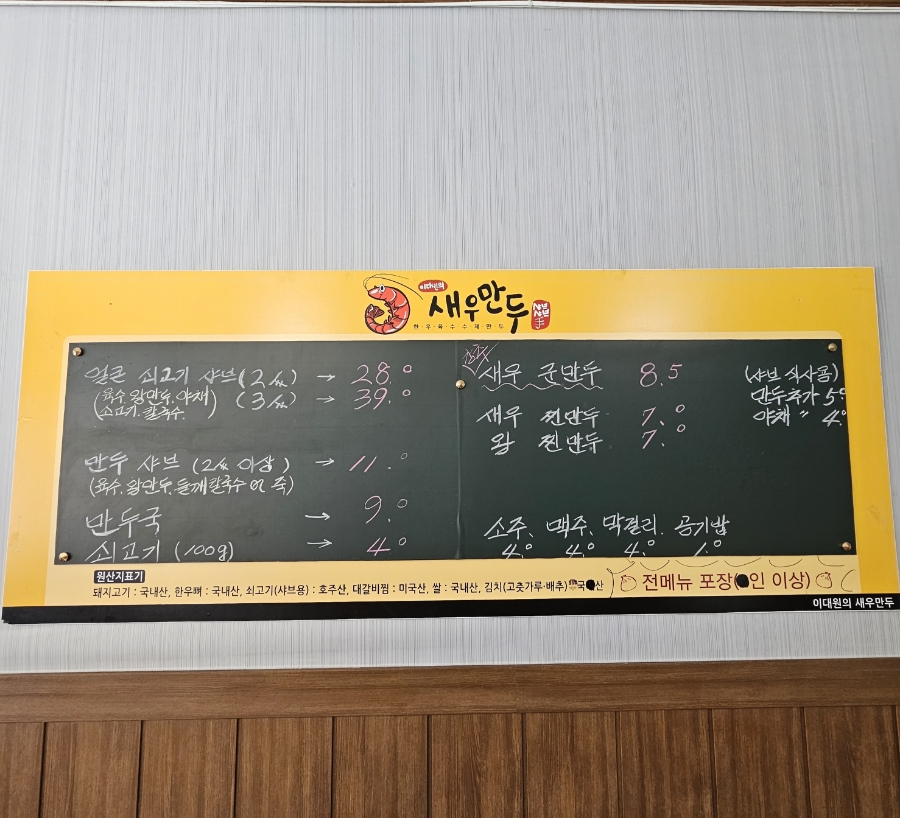 이대원의
새우만두
샤브샤브
한·우·육·수·수·제·만·두
얼큰 쇠고기 샤브 (2人) → 28.0
(육수, 왕만두, 야채 (3人) → 39.0
쇠고기, 칼국수)
만두 샤브 (2人 이상) → 11.0
(육수, 왕만두, 들깨칼국수 or 죽)
만두국 → 9.0
쇠고기 (100g) → 4.0
새우 군만두 8.5
새우 찐만두 7.0
왕 찐만두 7.0
(샤브 식사용)
만두추가 5.0
야채 〃 4.0
소주, 맥주, 막걸리, 공기밥
4.0 4.0 4.0 1.0
원산지표기
돼지고기 : 국내산, 한우뼈 : 국내산, 쇠고기(샤브용) : 호주산, 대갈비찜 : 미국산, 쌀 : 국내산, 김치(고춧가루·배추)
전메뉴 포장(인 이상)
이대원의 새우만두